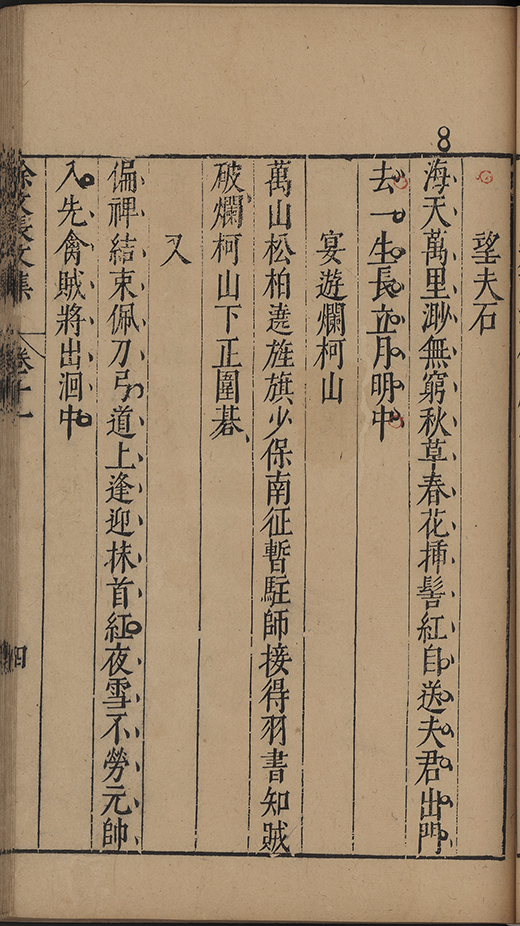 8
望夫石
海天萬里渺無窮秋草春花插髻紅自送夫君出門
去一生長立月明中
宴遊爛柯山
萬山松柏遶旌旗少保南征暫駐師接得羽書知賊
破爛柯山下正圍碁
又
偏裨結束佩刀弓道上逢迎抹首紅夜雪不勞元帥
入先禽賊將出洄中
徐文長文集
卷十一
四